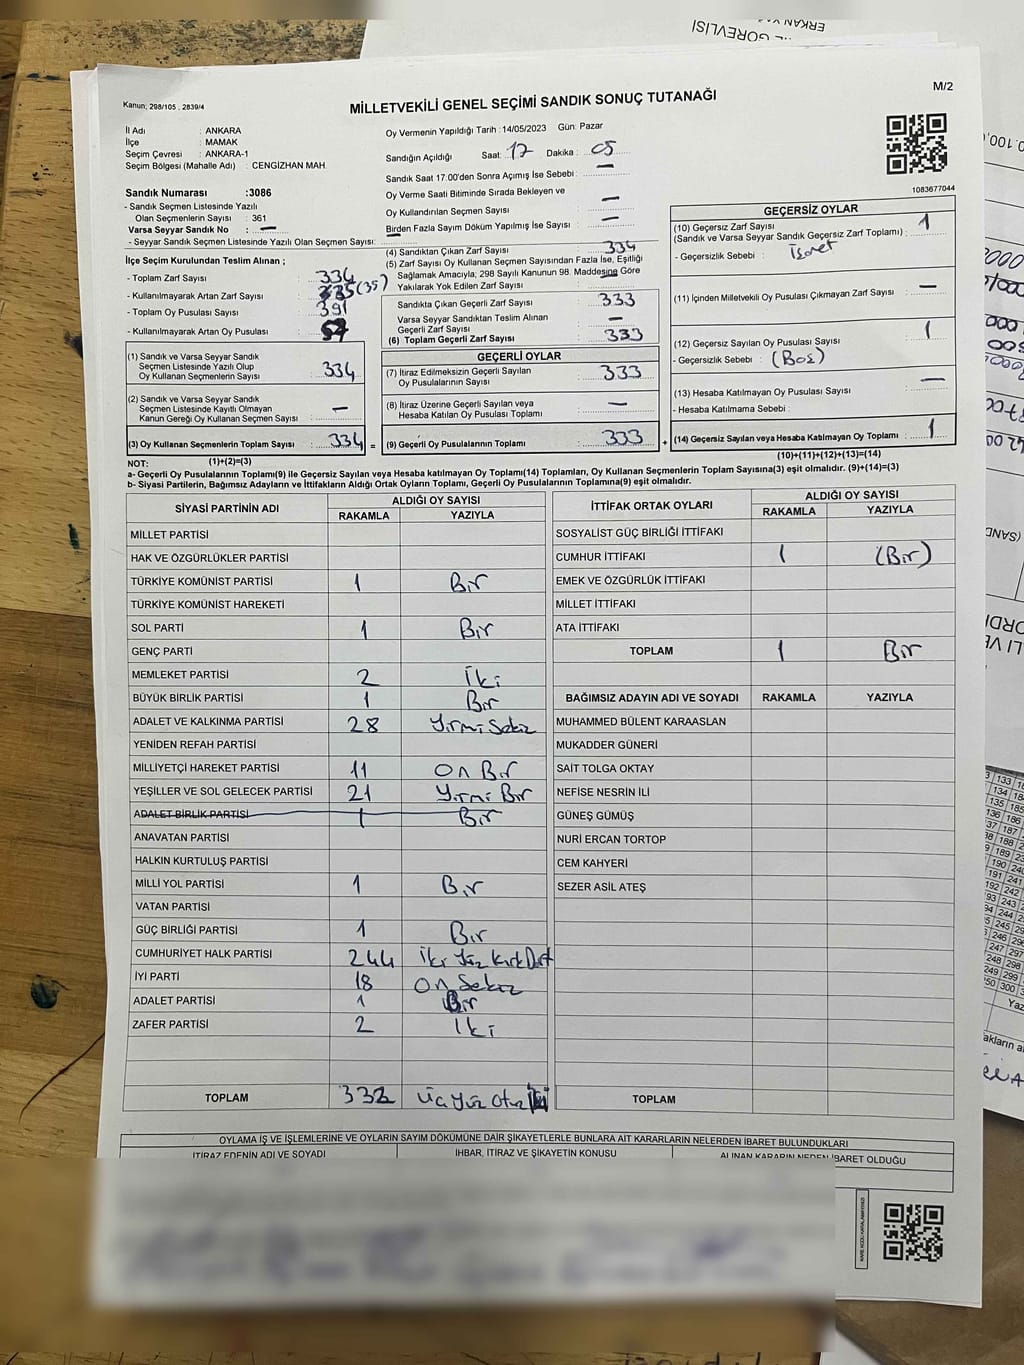 M/2
Kanun; 298/105 , 2839/4
MİLLETVEKİLİ GENEL SEÇİMİ SANDIK SONUÇ TUTANAĞI
İl Adı : ANKARA
İlçe : MAMAK
Seçim Çevresi : ANKARA-1
Seçim Bölgesi (Mahalle Adı) : CENGİZHAN MAH.
Sandık Numarası :3086
- Sandık Seçmen Listesinde Yazılı
Olan Seçmenlerin Sayısı : 361
Varsa Seyyar Sandık No : —
- Seyyar Sandık Seçmen Listesinde Yazılı Olan Seçmen Sayısı: —
İlçe Seçim Kurulundan Teslim Alınan ;
- Toplam Zarf Sayısı : 334
- Kullanılmayarak Artan Zarf Sayısı : (35)
- Toplam Oy Pusulası Sayısı : 391
- Kullanılmayarak Artan Oy Pusulası :
(1) Sandık ve Varsa Seyyar Sandık
Seçmen Listesinde Yazılı Olup
Oy Kullanan Seçmenlerin Sayısı : 334
(2) Sandık ve Varsa Seyyar Sandık
Seçmen Listesinde Kayıtlı Olmayan
Kanun Gereği Oy Kullanan Seçmen Sayısı : —
(3) Oy Kullanan Seçmenlerin Toplam Sayısı : 334 =
(1)+(2)=(3)
Oy Vermenin Yapıldığı Tarih : 14/05/2023 Gün: Pazar
Sandığın Açıldığı Saat: 17 Dakika : 05
Sandık Saat 17:00'den Sonra Açımış İse Sebebi : —
Oy Verme Saati Bitiminde Sırada Bekleyen ve
Oy Kullandırılan Seçmen Sayısı : —
Birden Fazla Sayım Döküm Yapılmış İse Sayısı : —
(4) Sandıktan Çıkan Zarf Sayısı : 334
(5) Zarf Sayısı Oy Kullanan Seçmen Sayısından Fazla İse, Eşitliği
Sağlamak Amacıyla; 298 Sayılı Kanunun 98. Maddesine Göre
Yakılarak Yok Edilen Zarf Sayısı : —
Sandıkta Çıkan Geçerli Zarf Sayısı : 333
Varsa Seyyar Sandıktan Teslim Alınan
Geçerli Zarf Sayısı : —
(6) Toplam Geçerli Zarf Sayısı : 333
GEÇERLİ OYLAR
(7) İtiraz Edilmeksizin Geçerli Sayılan
Oy Pusulalarının Sayısı : 333
(8) İtiraz Üzerine Geçerli Sayılan veya
Hesaba Katılan Oy Pusulası Toplamı : —
(9) Geçerli Oy Pusulalarının Toplamı : 333 +
1083677044
GEÇERSİZ OYLAR
(10) Geçersiz Zarf Sayısı
(Sandık ve Varsa Seyyar Sandık Geçersiz Zarf Toplamı) : 1
- Geçersizlik Sebebi : İşaret
(11) İçinden Milletvekili Oy Pusulası Çıkmayan Zarf Sayısı : —
(12) Geçersiz Sayılan Oy Pusulası Sayısı : 1
- Geçersizlik Sebebi : (Boş)
(13) Hesaba Katılmayan Oy Pusulası Sayısı : —
- Hesaba Katılmama Sebebi :
(14) Geçersiz Sayılan veya Hesaba Katılmayan Oy Toplamı : 1
(10)+(11)+(12)+(13)=(14)
NOT:
a- Geçerli Oy Pusulalarının Toplamı(9) ile Geçersiz Sayılan veya Hesaba katılmayan Oy Toplamı(14) Toplamları, Oy Kullanan Seçmenlerin Toplam Sayısına(3) eşit olmalıdır. (9)+(14)=(3)
b- Siyasi Partilerin, Bağımsız Adayların ve İttifakların Aldığı Ortak Oyların Toplamı, Geçerli Oy Pusulalarının Toplamına(9) eşit olmalıdır.
SİYASİ PARTİNİN ADI ALDIĞI OY SAYISI
RAKAMLA YAZIYLA
MİLLET PARTİSİ
HAK VE ÖZGÜRLÜKLER PARTİSİ
TÜRKİYE KOMÜNİST PARTİSİ 1 Bir
TÜRKİYE KOMÜNİST HAREKETİ
SOL PARTİ 1 Bir
GENÇ PARTİ
MEMLEKET PARTİSİ 2 İki
BÜYÜK BİRLİK PARTİSİ 1 Bir
ADALET VE KALKINMA PARTİSİ 28 Yirmi Sekiz
YENİDEN REFAH PARTİSİ
MİLLİYETÇİ HAREKET PARTİSİ 11 On Bir
YEŞİLLER VE SOL GELECEK PARTİSİ 21 Yirmi Bir
ADALET BİRLİK PARTİSİ 1 Bir
ANAVATAN PARTİSİ
HALKIN KURTULUŞ PARTİSİ
MİLLİ YOL PARTİSİ 1 Bir
VATAN PARTİSİ
GÜÇ BİRLİĞİ PARTİSİ 1 Bir
CUMHURİYET HALK PARTİSİ 244 İki Yüz Kırk Dört
İYİ PARTİ 18 On Sekiz
ADALET PARTİSİ 1 Bir
ZAFER PARTİSİ 2 İki
TOPLAM 332 Üç Yüz Otuz İki
İTTİFAK ORTAK OYLARI ALDIĞI OY SAYISI
RAKAMLA YAZIYLA
SOSYALİST GÜÇ BİRLİĞİ İTTİFAKI
CUMHUR İTTİFAKI 1 (Bir)
EMEK VE ÖZGÜRLÜK İTTİFAKI
MİLLET İTTİFAKI
ATA İTTİFAKI
TOPLAM 1 Bir
BAĞIMSIZ ADAYIN ADI VE SOYADI RAKAMLA YAZIYLA
MUHAMMED BÜLENT KARAASLAN
MUKADDER GÜNERİ
SAİT TOLGA OKTAY
NEFİSE NESRİN İLİ
GÜNEŞ GÜMÜŞ
NURİ ERCAN TORTOP
CEM KAHYERİ
SEZER ASİL ATEŞ
TOPLAM
OYLAMA İŞ VE İŞLEMLERİNE VE OYLARIN SAYIM DÖKÜMÜNE DAİR ŞİKAYETLERLE BUNLARA AİT KARARLARIN NELERDEN İBARET BULUNDUKLARI
İTİRAZ EDENİN ADI VE SOYADI İHBAR, İTİRAZ VE ŞİKAYETİN KONUSU ALINAN KARARIN NEDEN İBARET OLDUĞU